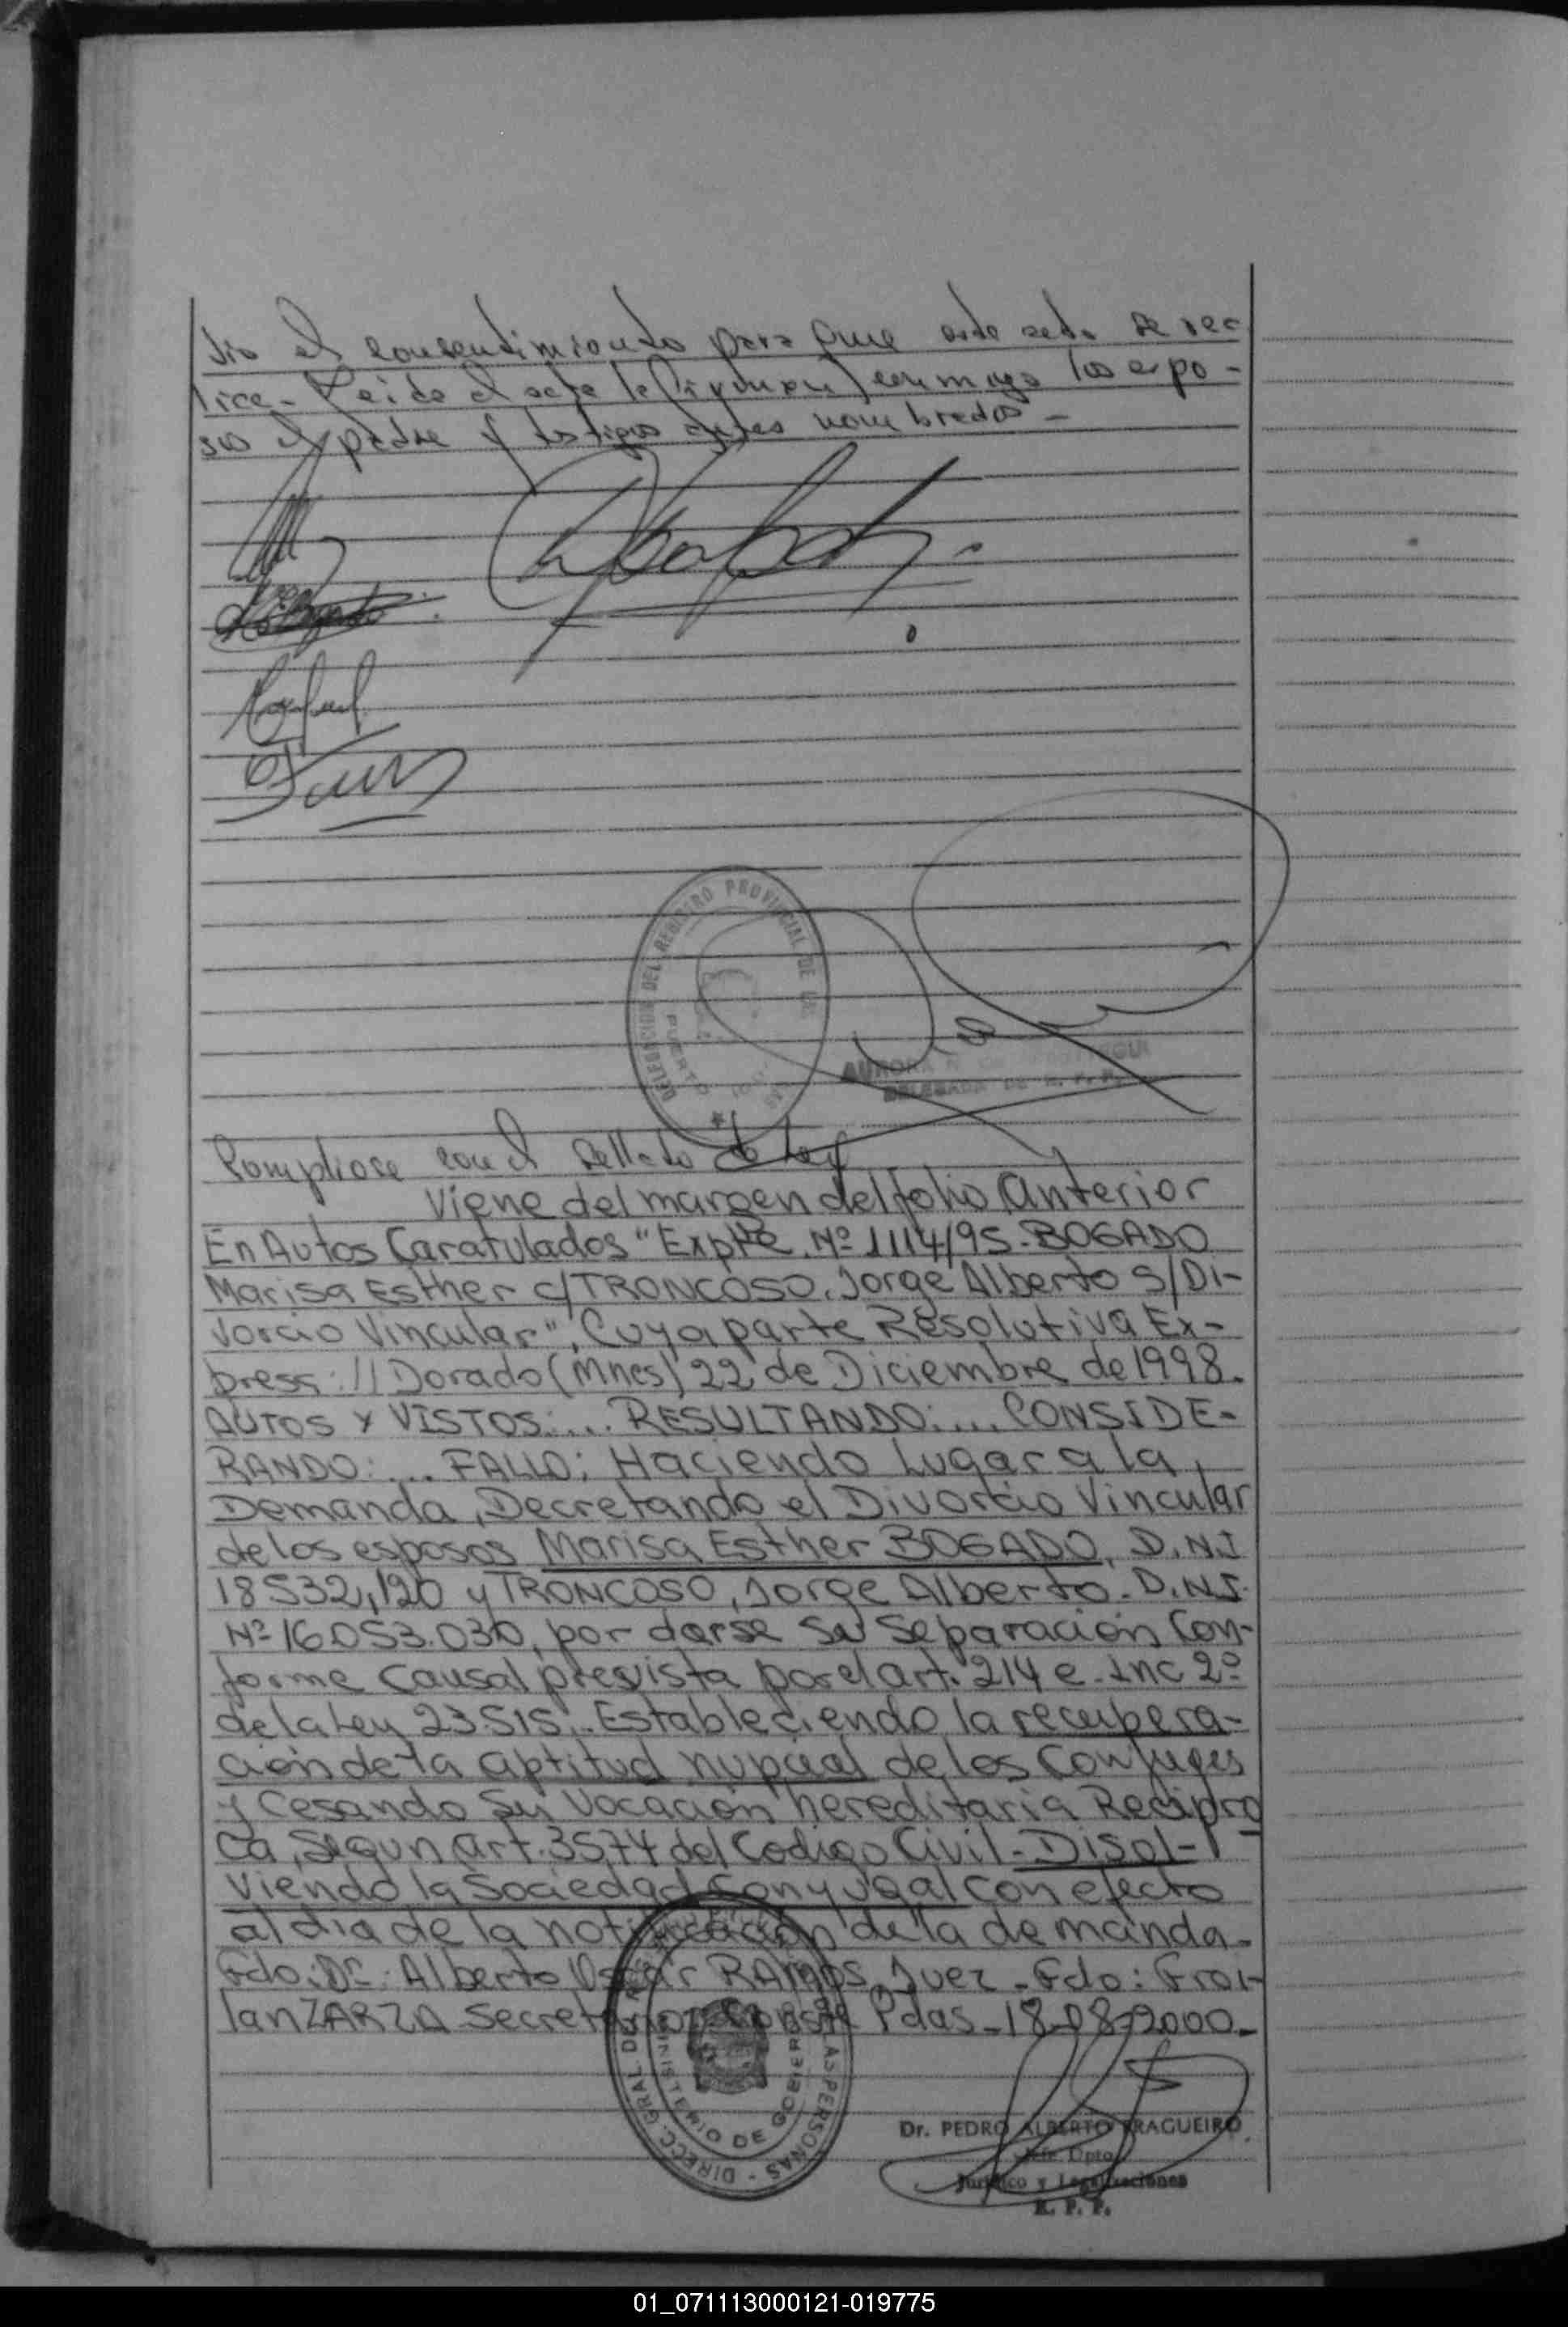 dio el consentimiento para que este acto se rea
lice - Leida el acta la firman conmigo los espo-
sos el padre y testigos antes nombrados -
DELEGACION DEL REGISTRO PROVINCIAL DE LAS
PUERTO
AURORA
DELEGADA DE R. P. P.
Cumpliose con el sellado de ley
Viene del margen del folio Anterior
En Autos Caratulados "Expte. Nº 1114/95-BOGADO
Marisa Esther c/TRONCOSO, Jorge Alberto S/Di-
vorcio Vincular", Cuya parte Resolutiva Ex-
presa: // Dorado (Mnes) 22 de Diciembre de 1998.
AUTOS Y VISTOS:... RESULTANDO:... CONSIDE-
RANDO:... FALLO: Haciendo Lugar a la
Demanda, Decretando el Divorcio Vincular
de los esposos Marisa Esther BOGADO, D.N.I
18.532,120 y TRONCOSO, Jorge Alberto - D.N.I.
Nº 16.053.030, por darse su Separación Con-
forme Causal prevista por el art. 214 e-Inc 2º
de la Ley 23.515.. Estableciendo la recupera-
ción de la aptitud nupcial de los Conyuges
y Cesando Su Vocación hereditaria Recipro
ca, Segun art. 3574 del Codigo Civil - Disol-
viendo la Sociedad Conyugal con efecto
al dia de la notificación de la demanda -
Fdo: Dr. Alberto Oscar RAMOS, Juez - Fdo: Froi-
lan ZARZA Secretario. Conste Pdas - 18-08-2000 -
DIRECC. GRAL DEL REGISTRO DE LAS PERSONAS -
MINISTERIO DE GOBIERNO
Dr. PEDRO ALBERTO FRAGUEIRO
Jefe Dpto
Jurídico y Legalizaciones
R. P. P.
01_071113000121-019775